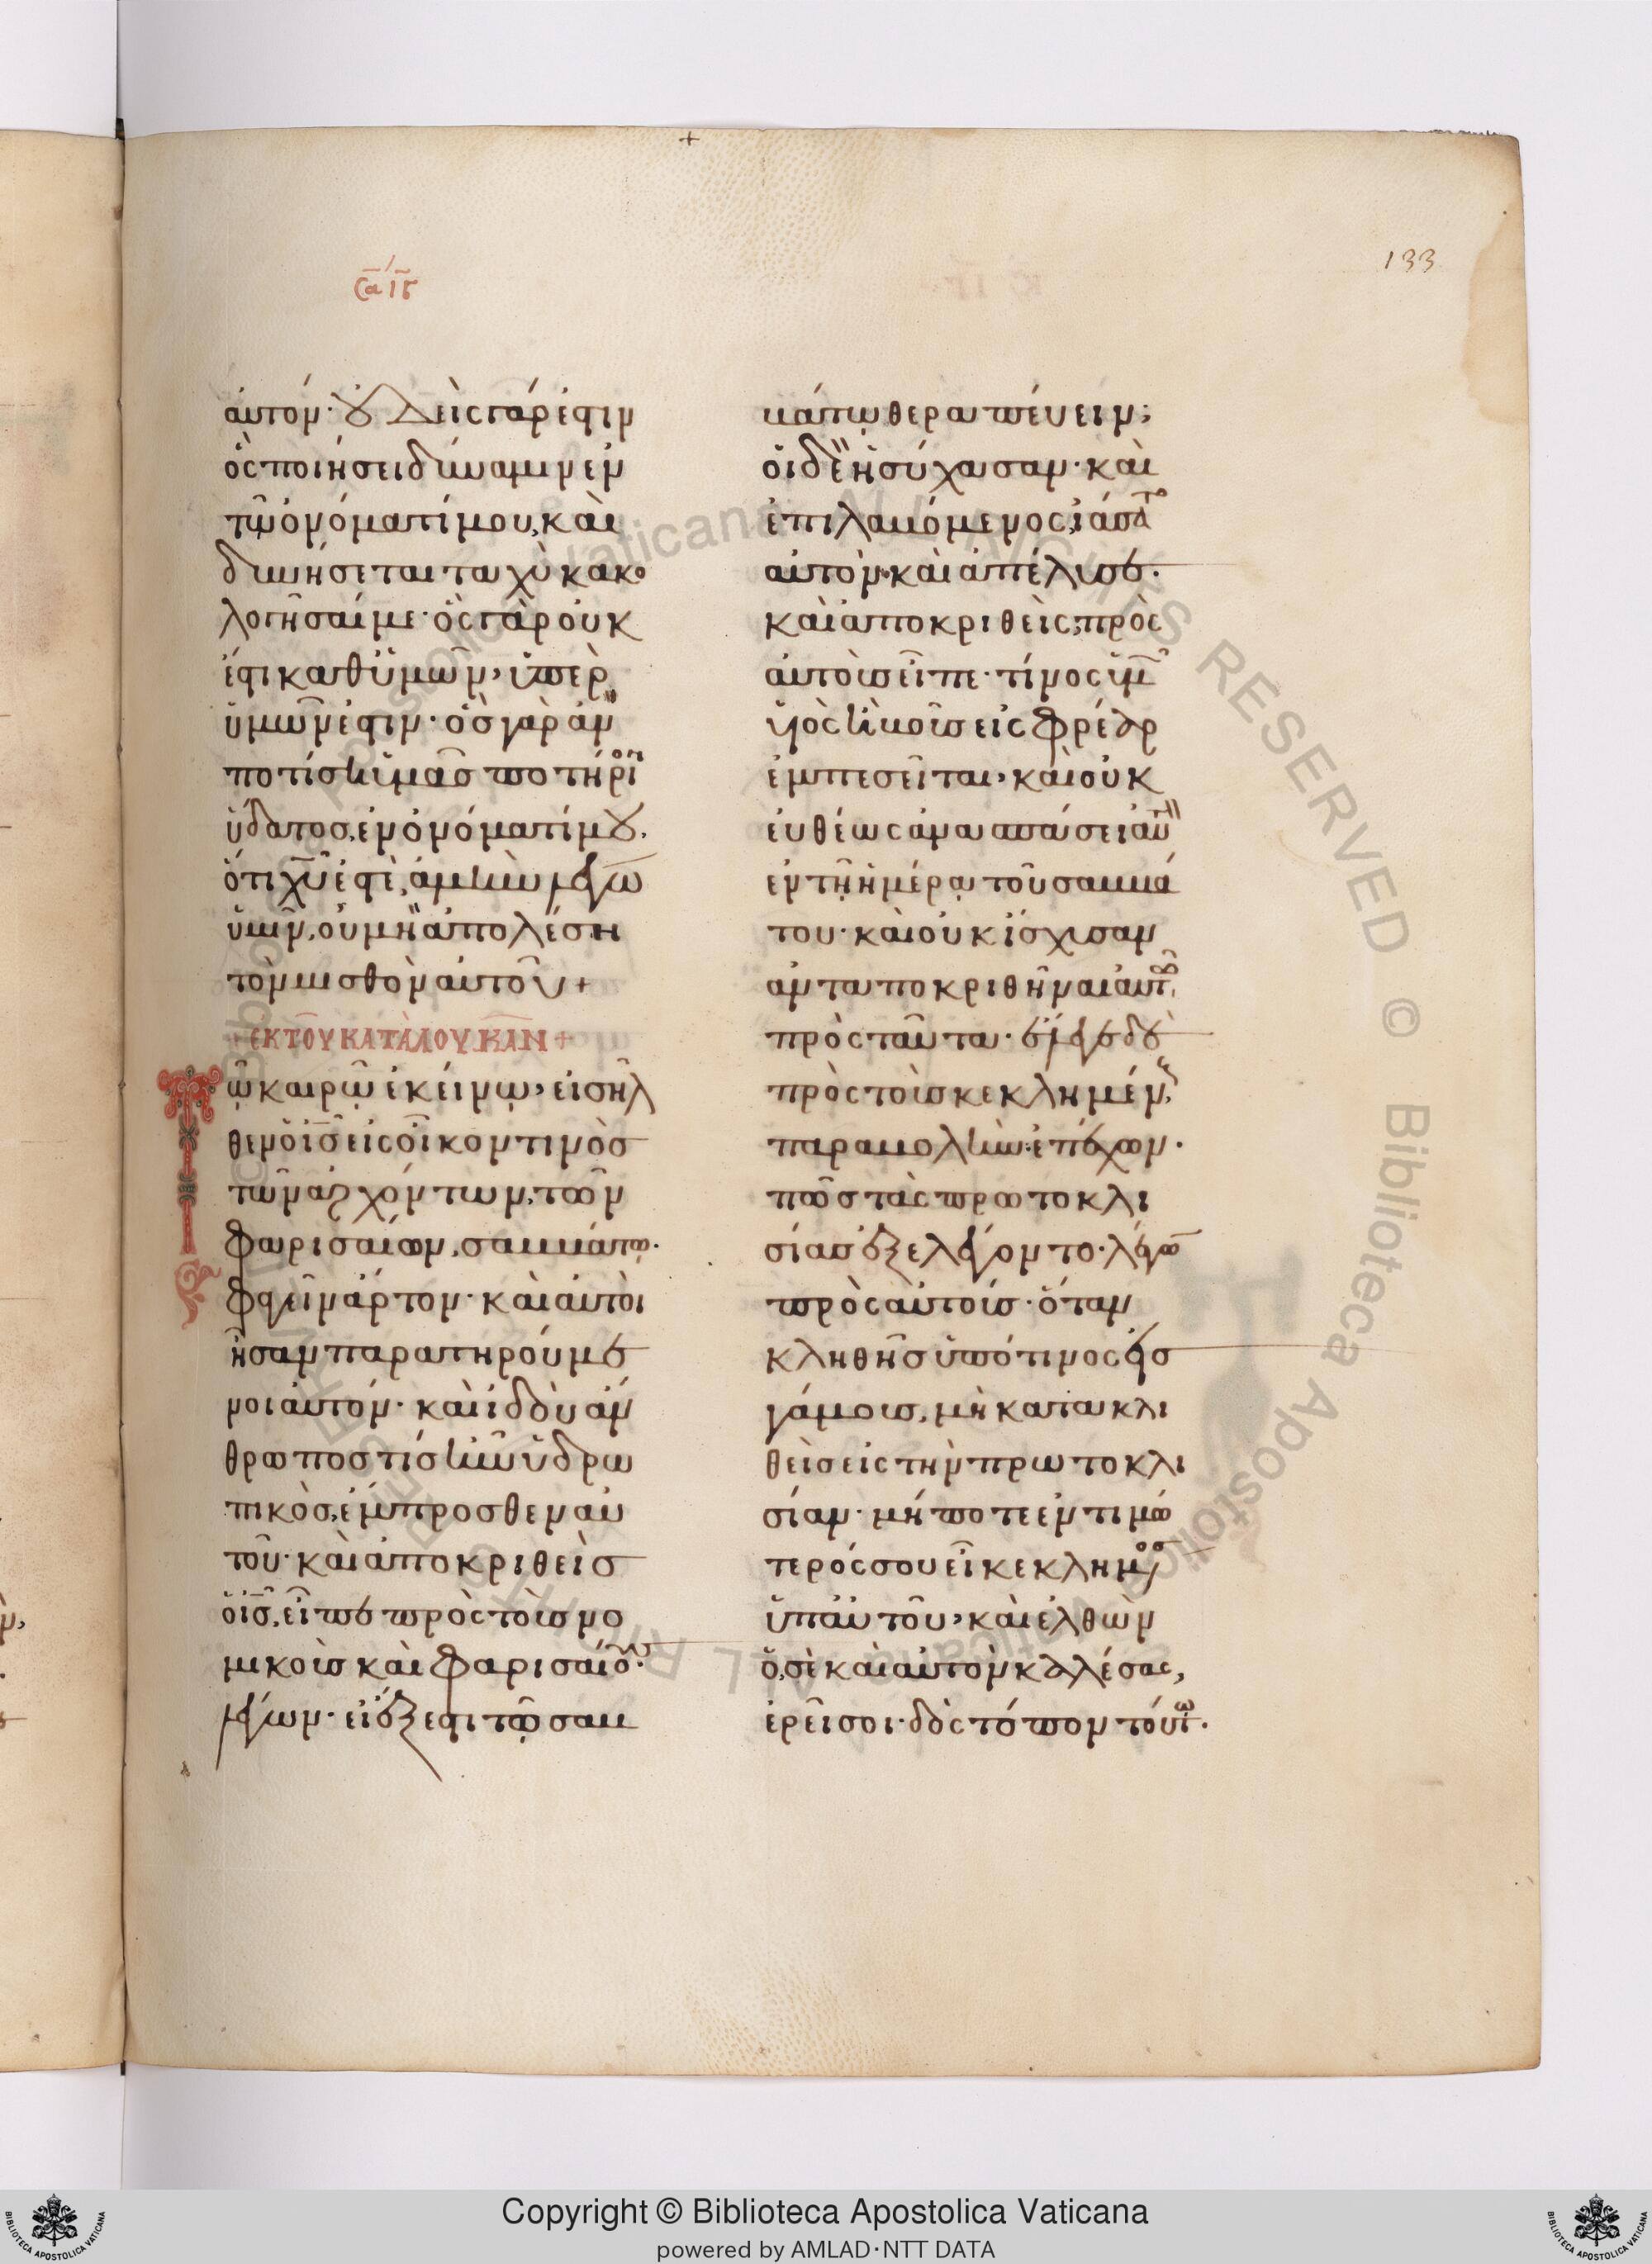 133
σα ιγ
αὐτόν· οὐδεὶς γάρ ἐστιν
ὃς ποιήσει δύναμιν ἐν
τῷ ὀνόματί μου, καὶ
δυνήσεται ταχὺ κακο
λογῆσαί με· ὃς γὰρ οὐκ
ἔστι καθ ὑμῶν, ὑπὲρ
ὑμῶν ἐστιν· ὃσ γὰρ ἂν
ποτίσῃ ὑμᾶσ ποτήριον
ὕδατοσ, ἐν ὀνόματί μου.
ὅτι χυ ἐστὲ, ἀμὴν λέγω
ὑμῖν, οὐ μὴ ἀπολέσῃ
τὸν μισθὸν αὐτοῦ +
ΕΚ ΤΟΥ ΚΑΤᾺ ΛΟΥΚΑΝ +
Τῷ καιρῷ ἐκείνῳ, εἰσῆλ
θεν ὁ ισ εἰς οἶκον τινὸσ
τῶν ἀρχόντων, τῶν
φαρισαίων, σαββάτῳ.
φαγεῖν ἄρτον· καὶ αὐτοὶ
ἦσαν παρατηρούμε
νοι αὐτόν· καὶ ἰδοὺ ἄν
θρωποσ τίσ ἦν ὑδρω
πικὸσ, ἔμπροσθεν αὐ
τοῦ· καὶ ἀποκριθεὶσ
ὁ ισ, εἶπε πρὸς τοὺσ νο
μικοὺσ καὶ φαρισαίουσ·
λέγων· εἰ ἔξεστι τῷ σαβ
βάτῳ θεραπεύειν;
οἱ δὲ ἡσύχασαν· καὶ
ἐπιλαβόμενος, ἰάσατο
αὐτὸν· καὶ ἀπέλυσε.
καὶ ἀποκριθεὶς, πρὸς
αὐτοὺσ εἶπε· τίνος ὑμῶν
υἱὸς ἢ βοῦσ εἰς φρέαρ
ἐμπεσεῖται, καὶ οὐκ
εὐθέως ἀνασπάσει αὐτὸν
ἐν τῇ ἡμέρᾳ τοῦ σαββά
του· καὶ οὐκ ἴσχυσαν
ἀνταποκριθῆναι αὐτῷ,
πρὸς ταῦτα· ἔλεγε δὲ
πρὸς τοὺσ κεκλημένους,
παραβολὴν· ἐπέχων·
πῶσ τὰς πρωτοκλι
σίασ ἐξελέγοντο· λέγων
πρὸς αὐτούσ· ὅταν
κληθῇσ ὑπό τινος εἰσ
γάμουσ, μὴ κατακλι
θεὶσ εἰς τὴν πρωτοκλι
σίαν· μήποτε ἐντιμό
τερός σου εἶ κεκλημένοσ
ὑπ αὐτοῦ, καὶ ἐλθὼν
ὅ, σὲ καὶ αὐτὸν καλέσας,
ἐρεῖ σοι· δὸς τόπον τούτω.
Copyright © Biblioteca Apostolica Vaticana
powered by AMLAD·NTT DATA